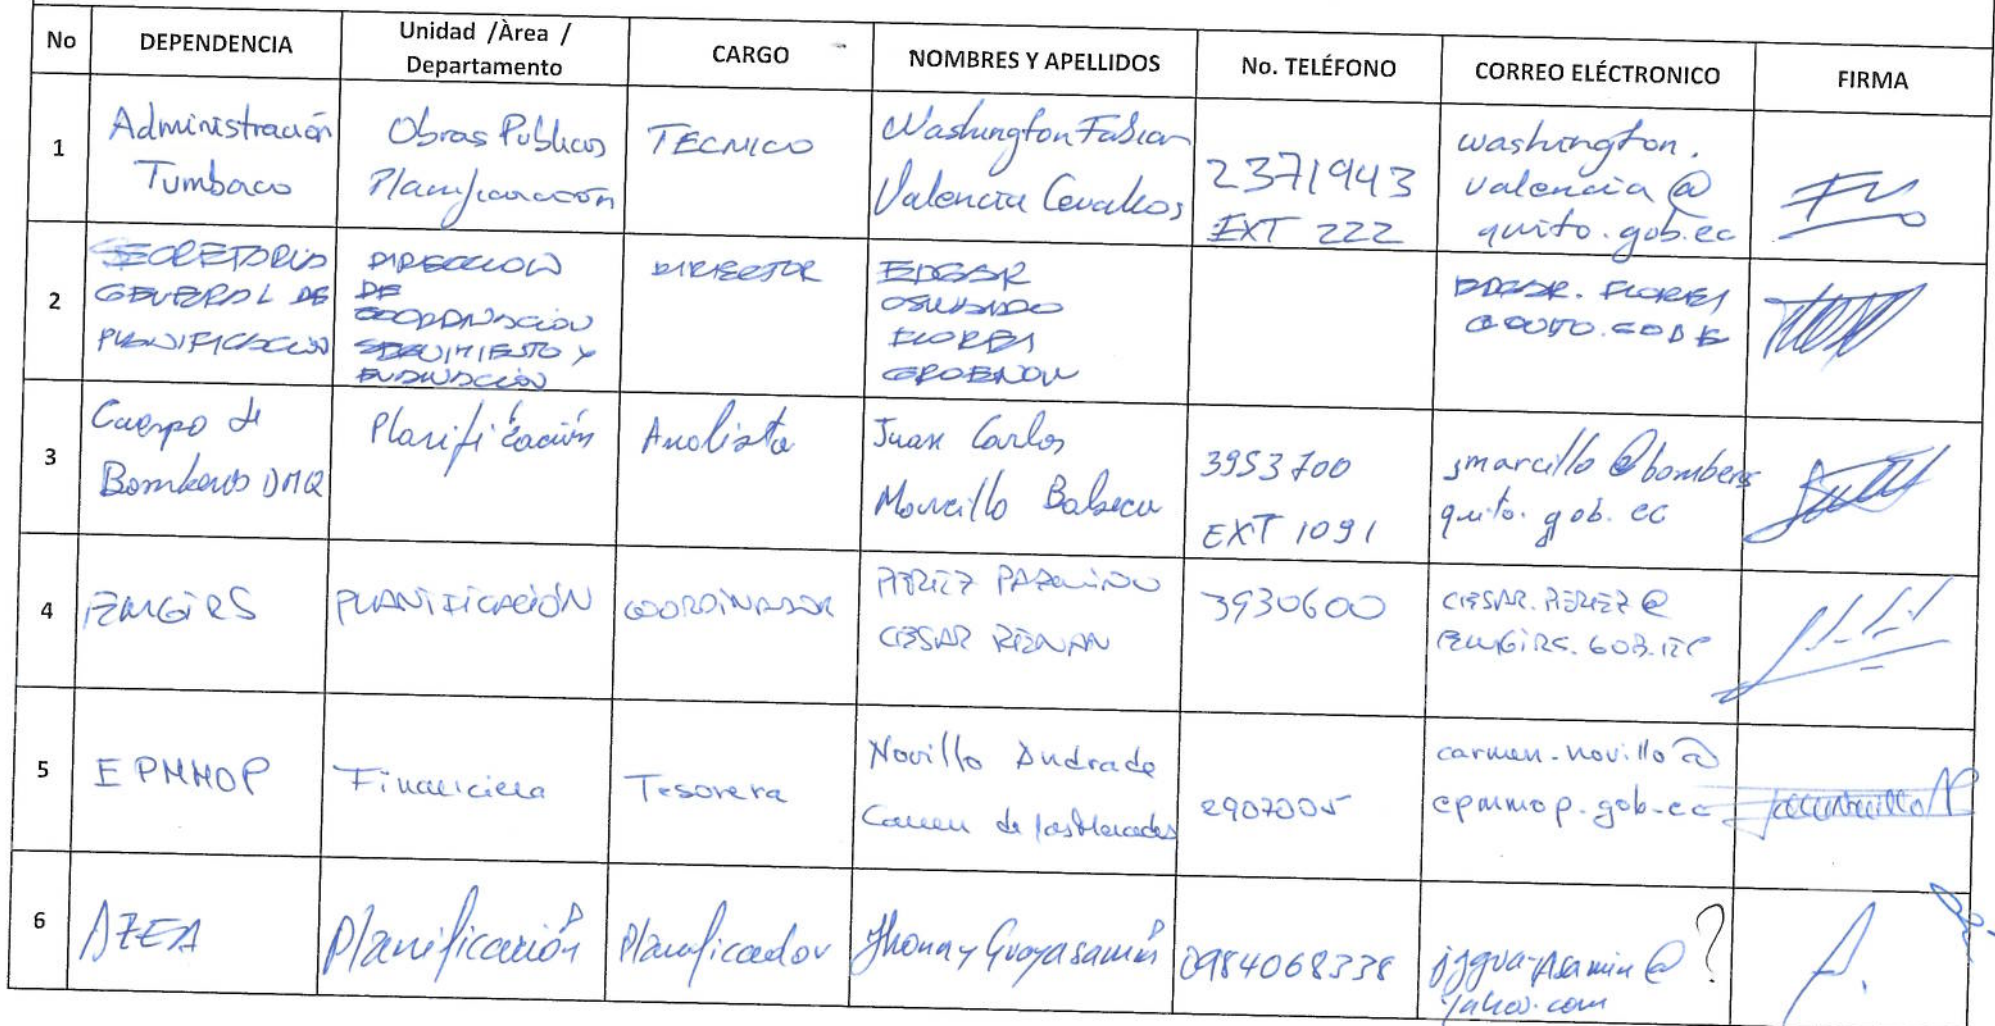 No DEPENDENCIA Unidad /Àrea / Departamento CARGO NOMBRES Y APELLIDOS No. TELÉFONO CORREO ELÉCTRONICO FIRMA
1
Administración
Tumbaco
Obras Publicas
Planificación
TECNICO
Washington Fabian
Valencia Cevallos
2371943
EXT 222
washington.
valencia@
quito.gob.ec
2
SECRETARIA
GENERAL DE
PLANIFICACION
DIRECCION
DE
COORDINACION
SEGUIMIENTO Y
EVALUACION
DIRECTOR
EDGAR
OSWALDO
FLORES
EDGAR. FLORES
@QUITO.GOB.E
3
Cuerpo de
Bomberos DMQ
Planificación
Analista
Juan Carlos
Marcillo Balseca
3953700
EXT 1091
jmarcillo@bomberos
quito.gob.ec
4
EMGIRS
PLANIFICACIÓN
COORDINADOR
PEREZ
CESAR RENAN
3930600
CESAR.PEREZ@
EMGIRS.GOB.EC
5
EPMMOP
Financiera
Tesorera
Novillo Andrade
Carmen de las Mercedes
2907005
carmen.novillo@
epmmop.gob.ec
6
AZEA
Planificación
Planificador
Jhonny Guayasamín
0984068338
?
yahoo.com